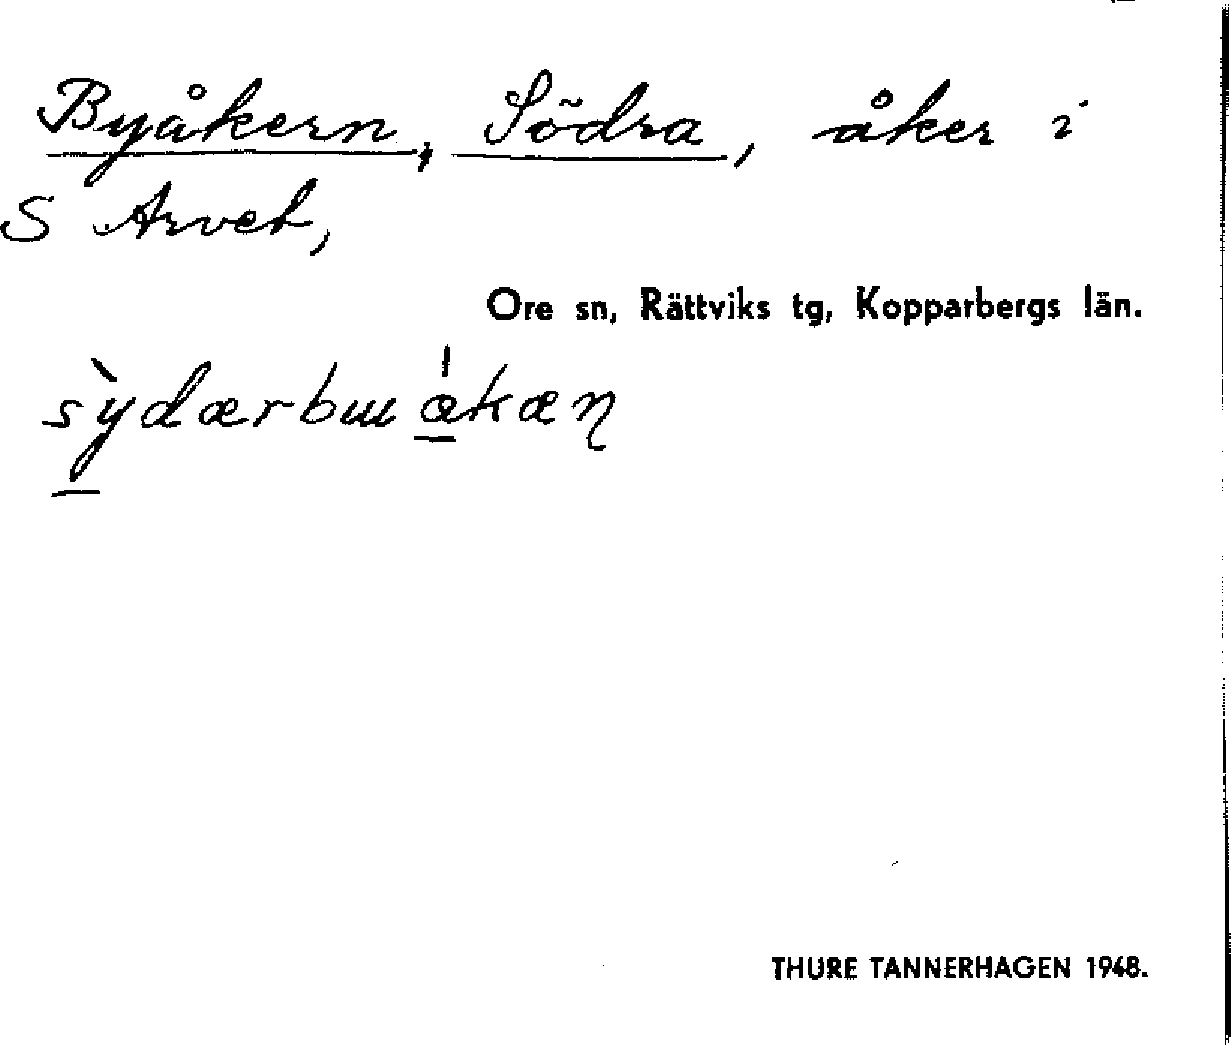 Byåkern, Södra, åker i
S Arvet,
Ore sn, Rättviks tg, Kopparbergs län.
sỳ̠dærbɯœ̠́kæŋ
THURE TANNERHAGEN 1948.